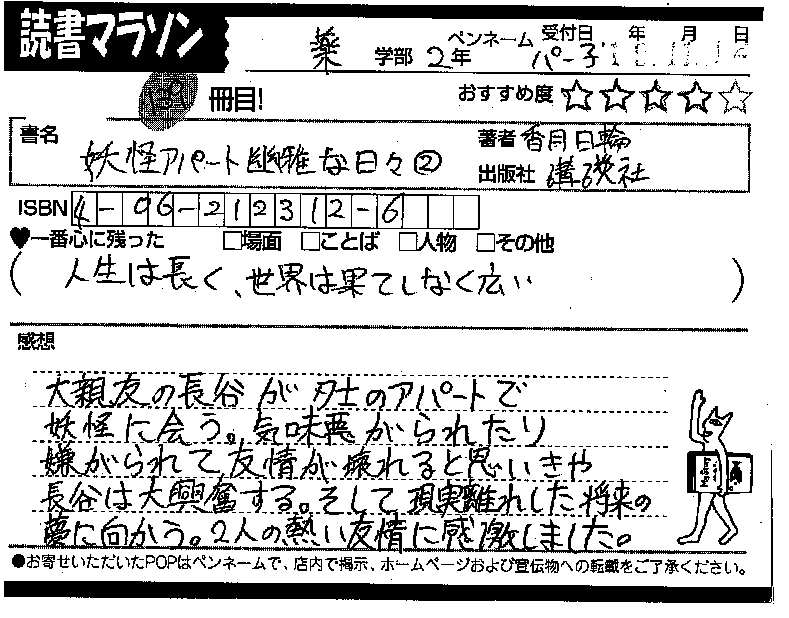 読書マラソン
薬 学部 2年 ペンネーム パー子 受付日 年 月 日
139 冊目! おすすめ度 ☆☆☆☆☆
書名 妖怪アパート幽雅な日々②
著者 香月日輪
出版社 講談社
ISBN 4-06-212312-6
♥一番心に残った □場面 □ことば □人物 □その他
(人生は長く、世界は果てしなく広い)
感想
大親友の長谷が夕士のアパートで
妖怪に会う。気味悪がられたり
嫌がられて友情が壊れると思いきや
長谷は大興奮する。そして現実離れした将来の
夢に向かう。2人の熱い友情に感激しました。
●お寄せいただいたPOPはペンネームで、店内で掲示、ホームページおよび宣伝物への転載をご了承ください。